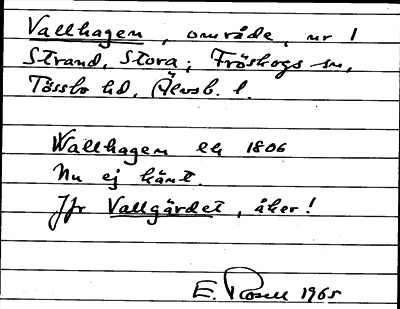 Vallhagen, område, nr 1
Strand, Stora; Fröskogs sn,
Tössbo hd, Älvsb. l.
Wallhagen lk 1806
Nu ej känt.
Jfr Vallgärdet, åker!
E. Rosell 1965